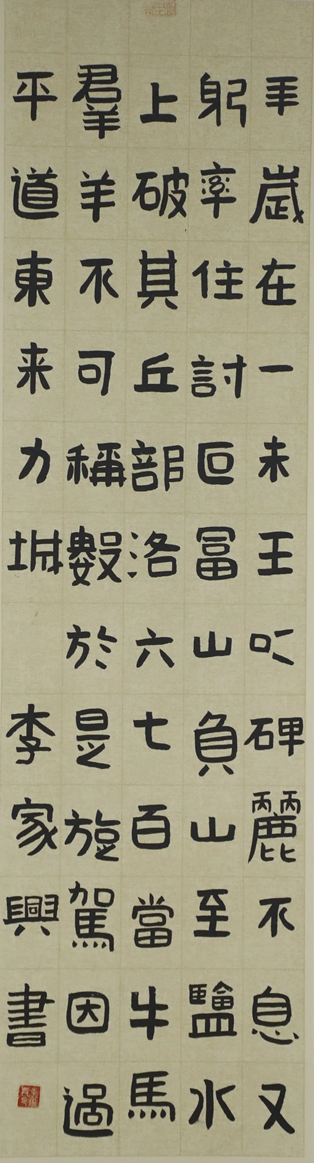 年歲在一未王以碑麗不息又
躬率住討叵冨山負山至鹽水
上破其丘部洛六七百當牛馬
羣羊不可稱數於是旋駕因過
平道東来力城 李家興書